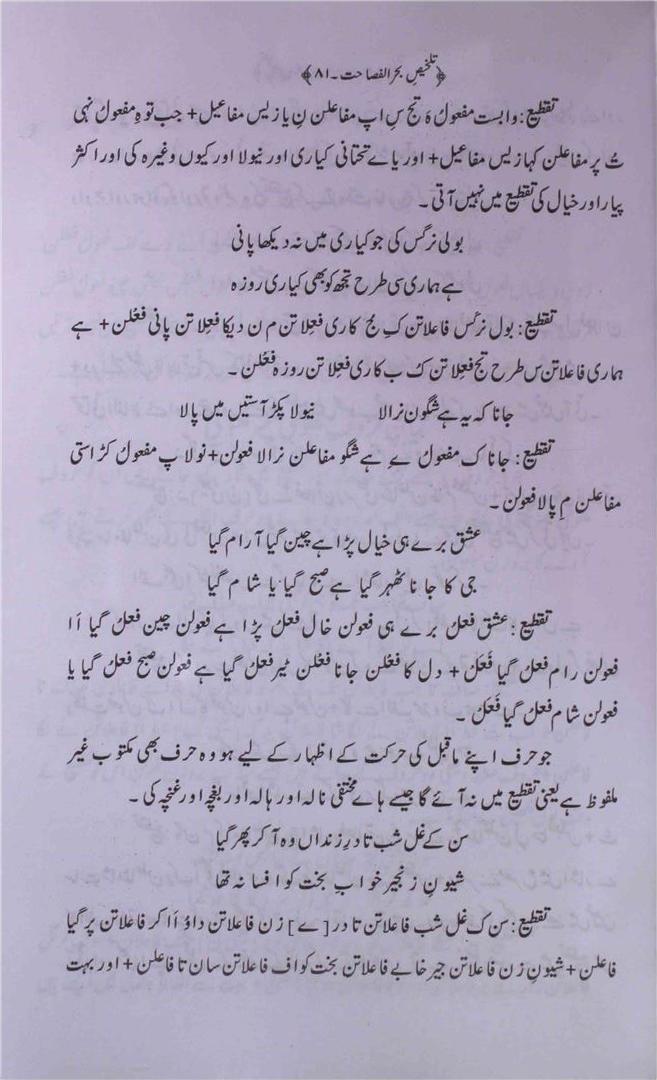 ﴿تلخیص بحرالفصاحت۔۸۱﴾
تقطیع: وابست مفعول ہ تج سِ اپ مفاعلن نِ یازیس مفاعیل + جب توہِ مفعول نہی
تُ پر مفاعلن کہازیس مفاعیل + اور یاے تحتانی کیاری اور نیولا اور کیوں وغیرہ کی اور اکثر
پیار اور خیال کی تقطیع میں نہیں آتی۔
بولی نرگس کی جو کیاری میں نہ دیکھا پانی
ہے ہماری سی طرح تجھ کو بھی کیاری روزہ
تقطیع: بول نرگس فاعلاتن کِ جُ کاری فعلاتن م ن دیکا فعلاتن پانی فعْلن + ہے
ہماری فاعلاتن س طرح تج فعِلاتن کُ ب کاری فعِلاتن روزہ فعْلن۔
جانا کہ یہ ہے شگون نرالا نیولا پکڑ آستیں میں پالا
تقطیع: جانا ک مفعول ے ہے شگو مفاعلن نرالا فعولن + نولا پ مفعول کڑاستی
مفاعلن مِ پالا فعولن۔
عشق برے ہی خیال پڑا ہے چین گیا آرام گیا
جی کا جانا ٹھہر گیا ہے صبح گیا یا شام گیا
تقطیع: عشق فعلُ برے ہی فعولن خال فعلُ پڑا ہے فعولن چین فعلُ گیا اَا
فعولن رام فعلُ گیا فَعَل + دل کا فعْلن جانا فعْلن ٹیر فعلُ گیا ہے فعولن صبح فعلُ گیا یا
فعولن شام فعلُ گیا فَعَل۔
جو حرف اپنے ماقبل کی حرکت کے اظہار کے لیے ہو وہ حرف بھی مکتوب غیر
ملفوظ ہے یعنی تقطیع میں نہ آئے گا جیسے ہاے مختفی نالہ اور ہالہ اور بغچہ اور غنچہ کی۔
سن کے غل شب تا درِ زنداں وہ آکر پھر گیا
شیونِ زنجیر خوابِ بخت کو افسانہ تھا
تقطیع: سن ک غل شب فاعلاتن تا در[ے] زن فاعلاتن داوُ اَا کر فاعلاتن پر گیا
فاعلن + شیونِ زن فاعلاتن جیر خابے فاعلاتن بخت کو اف فاعلاتن سان تا فاعلن + اور بہت